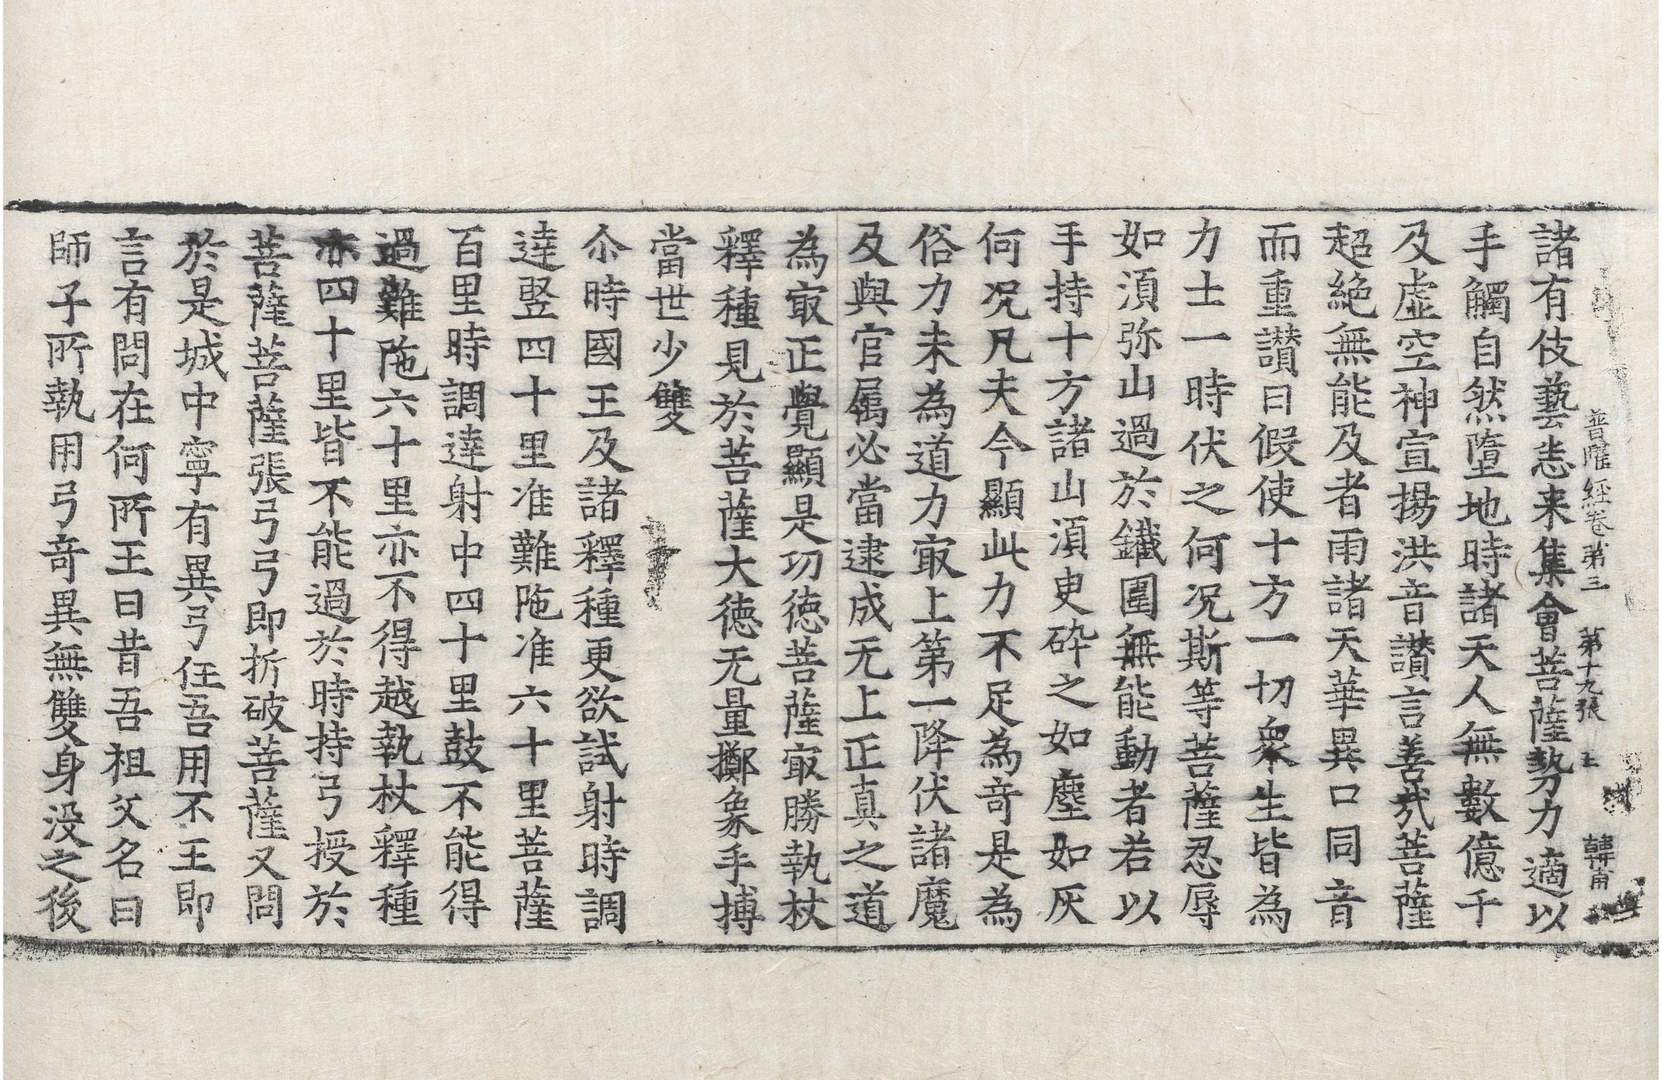 普曜經卷第三 第十九張
諸有伎藝悉来集會菩薩勢力適以
手觸自然墮地時諸天人無數億千
及虛空神宣揚洪音讃言善㢤菩薩
超絶無能及者雨諸天華異口同音
而重讃曰假使十方一切衆生皆為
力士一時伏之何况斯等菩薩忍辱
如湏弥山過於鐵圍無能動者若以
手持十方諸山湏臾碎之如塵如灰
何况凡夫今顯此力不足為竒是為
俗力未為道力㝡上第一降伏諸魔
及與官属必當逮成无上正真之道
為㝡正覺顯是功徳菩薩㝡勝執杖
釋種見於菩薩大徳无量擲象手搏
當世少雙
尒時國王及諸釋種更欲試射時調
逹竪四十里准難陁准六十里菩薩
百里時調逹射中四十里鼓不能得
過難陁六十里亦不得越執杖釋種
亦四十里皆不能過於時持弓授於
菩薩菩薩張弓弓即折破菩薩又問
於是城中寧有異弓任吾用不王即
言有問在何所王曰昔吾祖父名曰
師子所執用弓竒異無雙身没之後